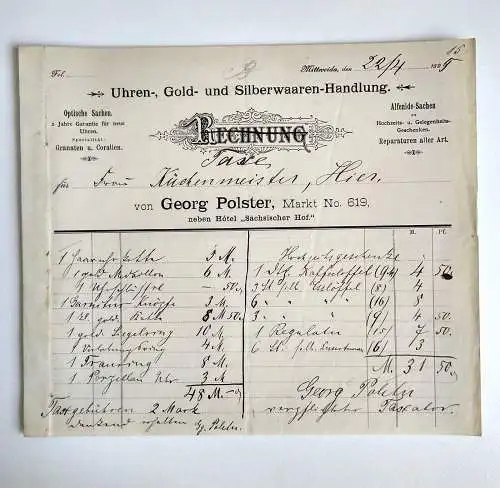 15
Fol.
Mittweida, den 22/4 1895
Uhren-, Gold- und Silberwaaren-Handlung.
Optische Sachen.
2 Jahre Garantie für neue
Uhren.
Specialität:
Granaten u. Corallen.
RECHNUNG
Alfenide-Sachen
zu
Hochzeits- u. Gelegenheits-
Geschenken.
Reparaturen aller Art.
Taxe
für Frau Küchenmeister, Hier.
von Georg Polster, Markt No. 619,
neben Hôtel „Sächsischer Hof."
M. Pf.
1 Haaruhrkette 3 M.
1 gold Medaillon 6 M.
1 Uhrschlüssel — 50
1 Garnitur Knöpfe 3 M.
1 gold. Kette 8 M 50
1 gold Siegelring 10 M.
1 Verlobungsring 4 M.
1 Trauring 8 M.
1 Porzellan Uhr 3 M
48 M.
Taxgebühren 2 Mark
dankend erhalten Gg. Polster.
Hochzeitsgeschenke
1 Dtz Kaffelöffel (94) 4 50
3 St (8) 4
6 " " (16) 8
3 " " (9) 4 50
1 Regulator (15) 7 50
6 St. (6) 3
M. 31 50
Georg Polster
verpflichteter Taxator.